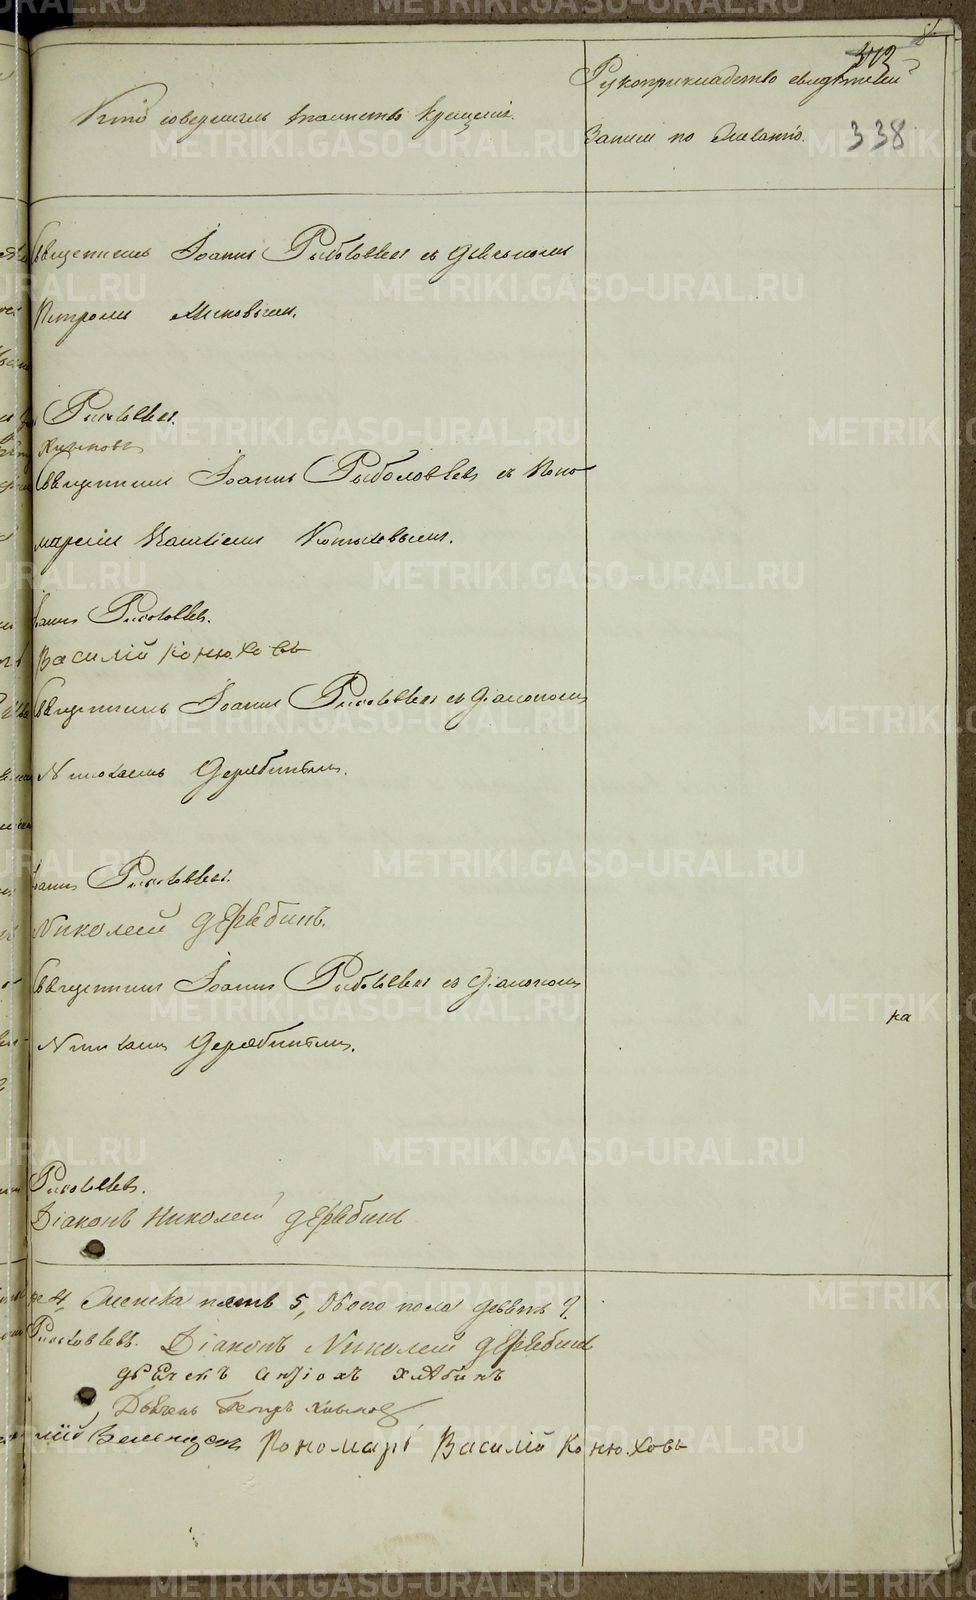 313
Кто совершилъ таинство крещенія.
Рукоприкладство свидѣтелей
записи по желанію.
338
Священникъ Іоаннъ Рыболовлевъ съ Дьячкомъ
Петромъ
Рыболовлевъ.
Хизнковъ
Священникъ Іоаннъ Рыболовлевъ съ Поно-
маремъ Василіемъ Конюховымъ.
Іоаннъ Рыболовлевъ.
Василій Конюховъ
Священникъ Іоаннъ Рыболовлевъ съ Діакономъ
Николаемъ Дерябинымъ.
Іоаннъ Рыболовлевъ.
Николай Дерябинъ.
Священникъ Іоаннъ Рыболовлевъ съ Діакономъ
ка
Николаемъ Дерябинымъ.
Рыболовлевъ.
Діаконъ Николай Дерябинъ
4, Женска пять 5, Обоего пола девять 9.
Рыболовлевъ. Діаконъ Николай Дерябинъ
дьячекъ
Дьячекъ Петръ
Пономарь Василій Конюховъ
METRIKI.GASO-URAL.RU